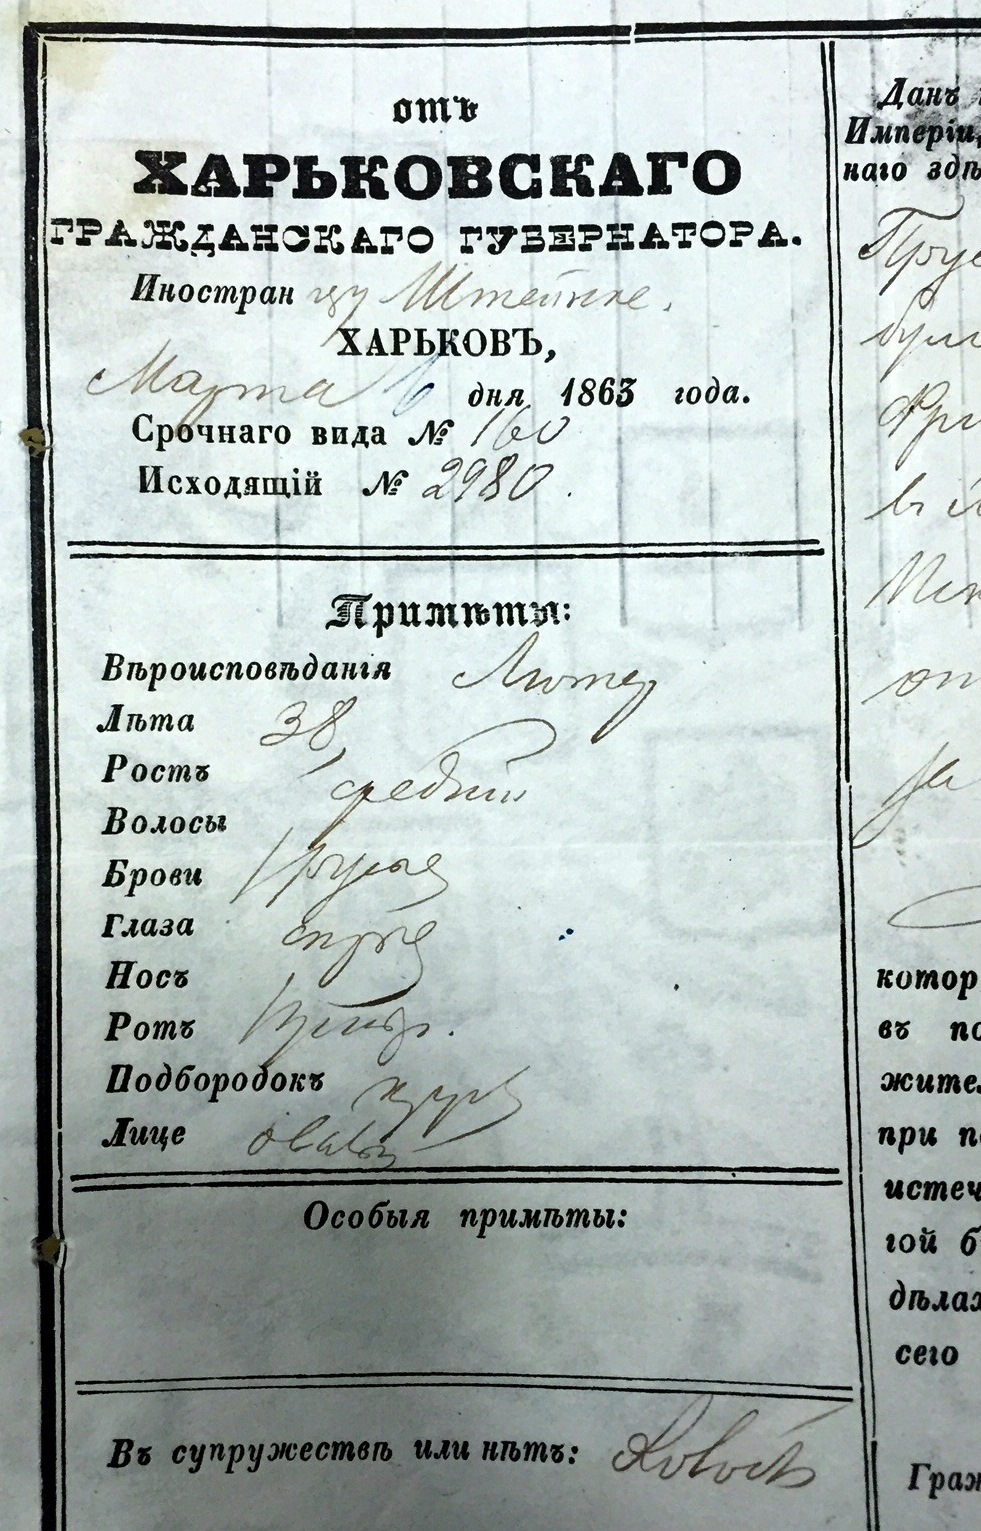 отъ
ХАРЬКОВСКАГО
ГРАЖДАНСКАГО ГУБЕРНАТОРА.
Иностранцу Штейнке.
ХАРЬКОВЪ,
Марта 6 дня 1863 года.
Срочнаго вида № 160
Исходящій № 2980.
Примѣты:
Вѣроисповѣданія Лютер
Лѣта 38,
Ростъ средній
Волосы
Брови русые
Глаза сѣрые
Носъ
Ротъ умѣр.
Подбородокъ кругл
Лице овальн
Особыя примѣты:
Въ супружествѣ или нѣтъ: Холостъ
Данъ
Имперіи,
наго здѣ
Прус
в
от
за
котор
въ по
жител
при п
истеч
гой б
дѣлах
сего
Граж